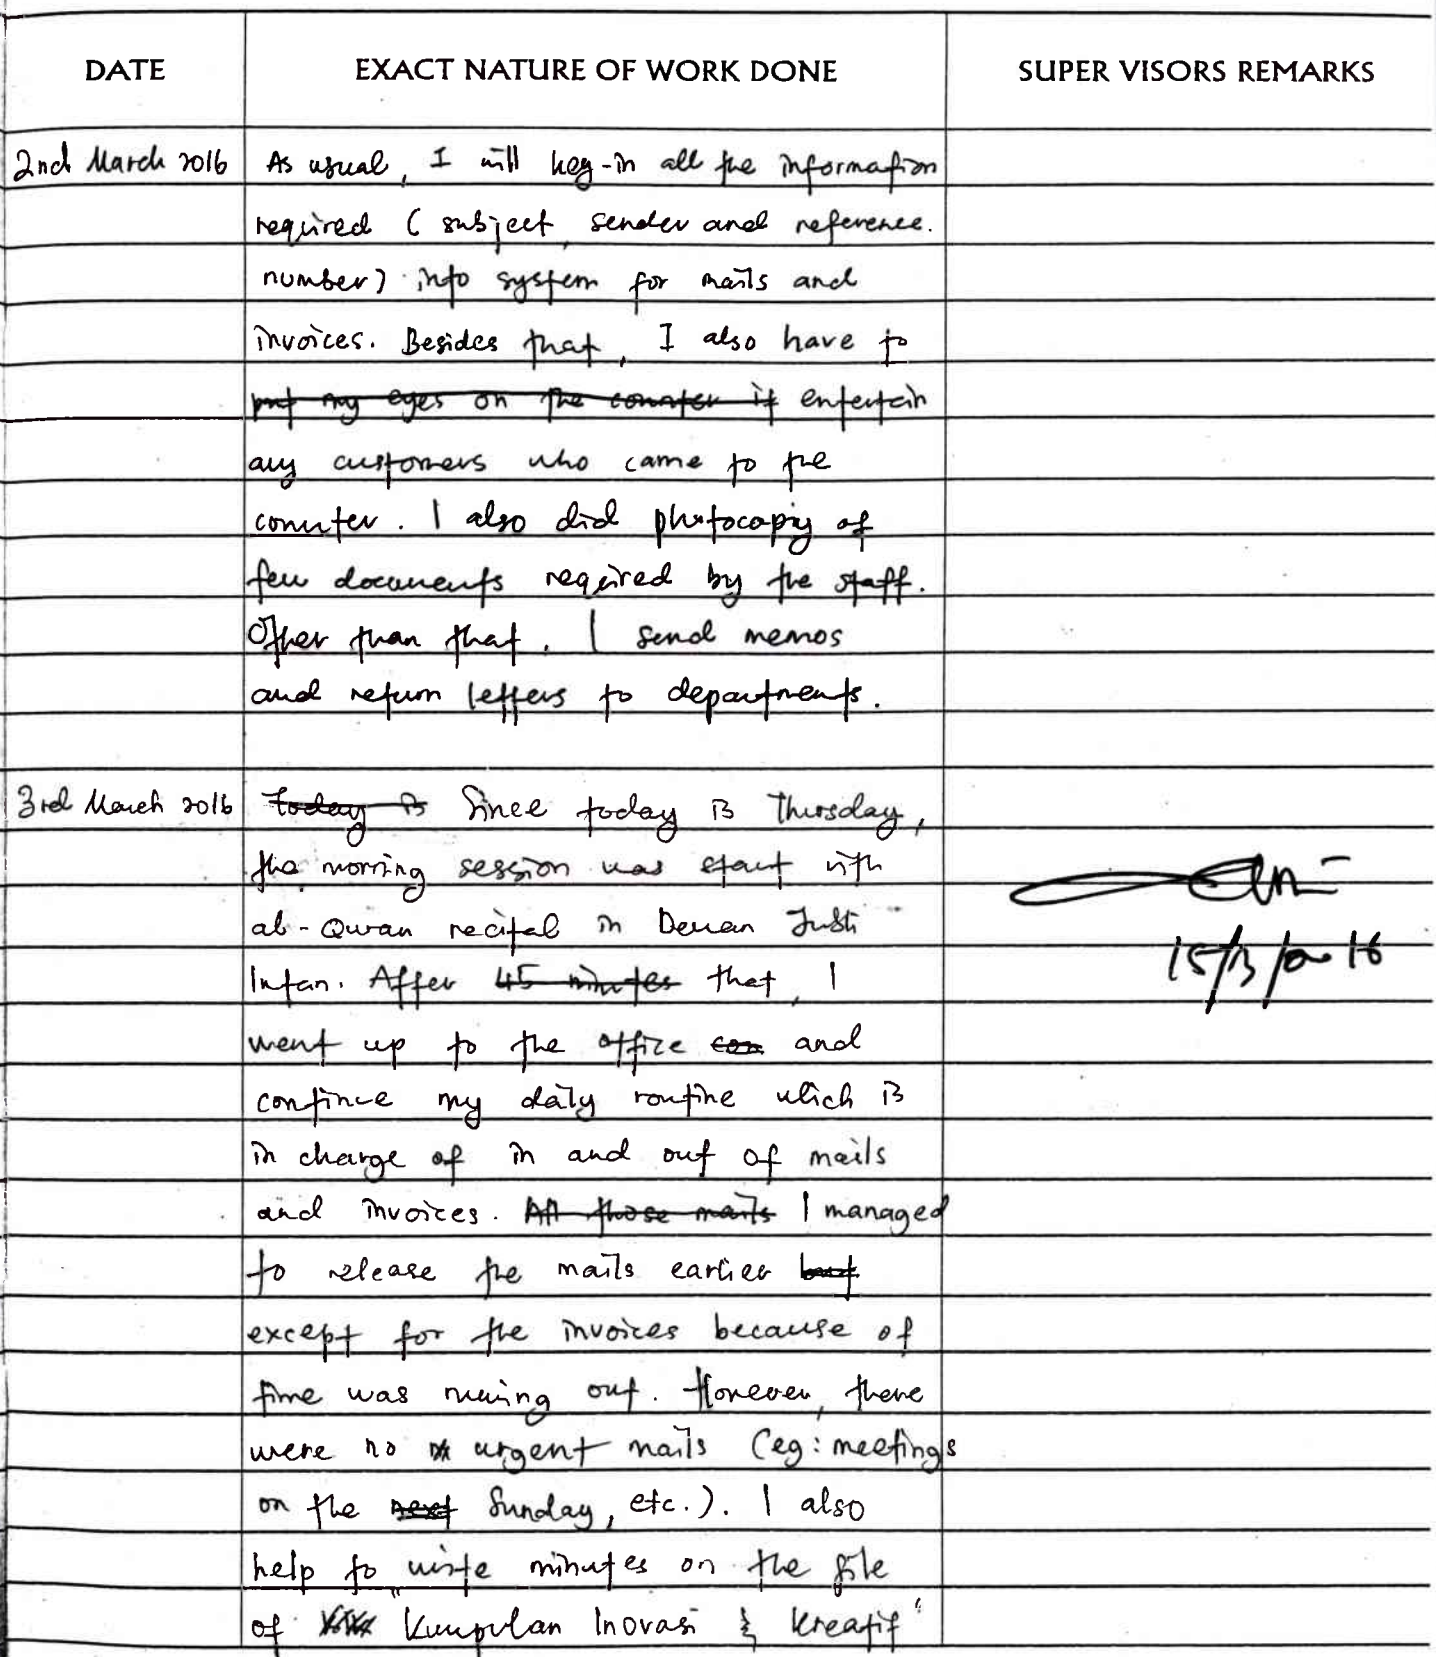 DATE EXACT NATURE OF WORK DONE SUPER VISORS REMARKS
2nd March 2016 As usual, I will key-in all the information
required (subject, sender and reference.
number) into system for mails and
invoices. Besides that, I also have to
put my eyes on the counter if entertain
any customers who came to the
counter. I also did photocopy of
few documents required by the staff.
Other than that, I send memos
and return letters to departments.
3rd March 2016 Today is Since today is Thursday,
the morning session was start with
al-Quran recital in Dewan
Intan. After 45 minutes that, I
15/3/2016
went up to the office con and
continue my daily routine which is
in charge of in and out of mails
and invoices. All those mails I managed
to release the mails earlier but
except for the invoices because of
time was runing out. However, there
were no urgent mails (eg: meetings
on the next Sunday, etc.). I also
help to write minutes on the file
of "Kumpulan Inovasi & Kreatif"